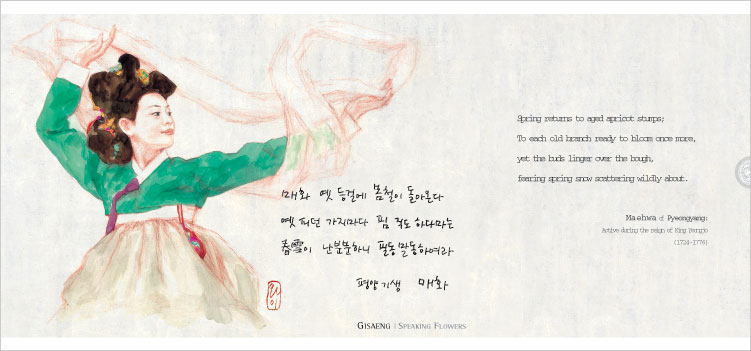 매화 옛 등걸에 봄철이 돌아온다
옛 피던 가지마다 핌 직도 하다마는
春雪이 난분분하니 필동말동하여라
평양기생 매화
Spring returns to aged apricot stumps;
To each old branch ready to bloom once more,
yet the buds linger over the bough,
fearing spring snow scattering wildly about.
Maehwa of Pyeongyang:
Active during the reign of King Yeongjo
(1724-1776)
GISAENG | SPEAKING FLOWERS